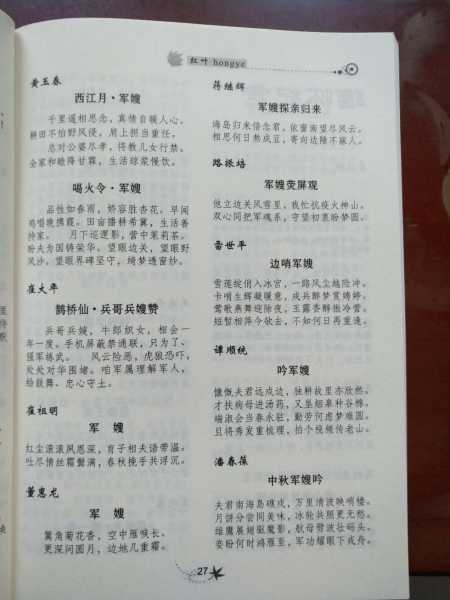 红叶 hongye
黄玉春
西江月·军嫂
千里遥相思念，真情自暖人心。
耕田不怕野风侵，肩上担当重任。
总对公婆尽孝，待教儿女行禁。
全家和睦降甘霖，生活绿浆慢饮。
喝火令·军嫂
品性如春雨，娇容胜杏花。早闻
鸡唱晚携霞。田亩播耕希冀，生活善
持家。 月下巡逻影，营中茉莉茶。
盼夫为国铸荣华。望眼边关，望眼野
风沙。望眼界碑坚守，绮梦透窗纱。
崔大年
鹊桥仙·兵哥兵嫂赞
兵哥兵嫂，牛郎织女，相会一
年一度。手机屏蔽禁通联，只为了、
强军练武。 风云险恶，虎狼恐吓，
处处对华围堵。咱军属理解军人，
给鼓舞、忠心守土。
崔祖明
军 嫂
红尘滚滚风恩深，育子相夫语带温。
吐尽情丝霜鬓满，春秋携手共浮沉。
董惠龙
军 嫂
篱角菊花香，空中雁唳长。
更深问圆月，边地几重霜。
蒋继辉
军嫂探亲归来
海岛归来倍念君，依窗南望尽风云。
相思何日熟成豆，寄向边陲不嫁人。
路振培
军嫂荧屏观
他立边关风雪里，我忙抗疫火神山。
双心同把军魂系，守望初衷盼梦圆。
雷世平
边哨军嫂
雪莲绽俏入冰宫，一路风尘越险冲。
卡哨生辉凝暖意，戍兵醉梦赏娉婷。
莺歌燕舞绽除夜，玉露香醇抵冷营。
短暂相拜今欲去，不知何日再重逢。
谭顺统
吟军嫂
慷慨夫君远戍边，独耕故里亦欣然。
才扶病母进汤药，又垦烟皋种谷棉。
端淑会当春永驻，勤劳何虑梦难圆。
且将秀发重梳理，拍个视频传老山。
潘春葆
中秋军嫂吟
夫君南海岛礁戍，万里情波映哨楼。
月饼分尝同美味，冰轮共照更无愁。
雄鹰展翅驱魔影，航母劈波壮码头。
妾盼何时鸿雁至，军功耀眼下戎舟。
27